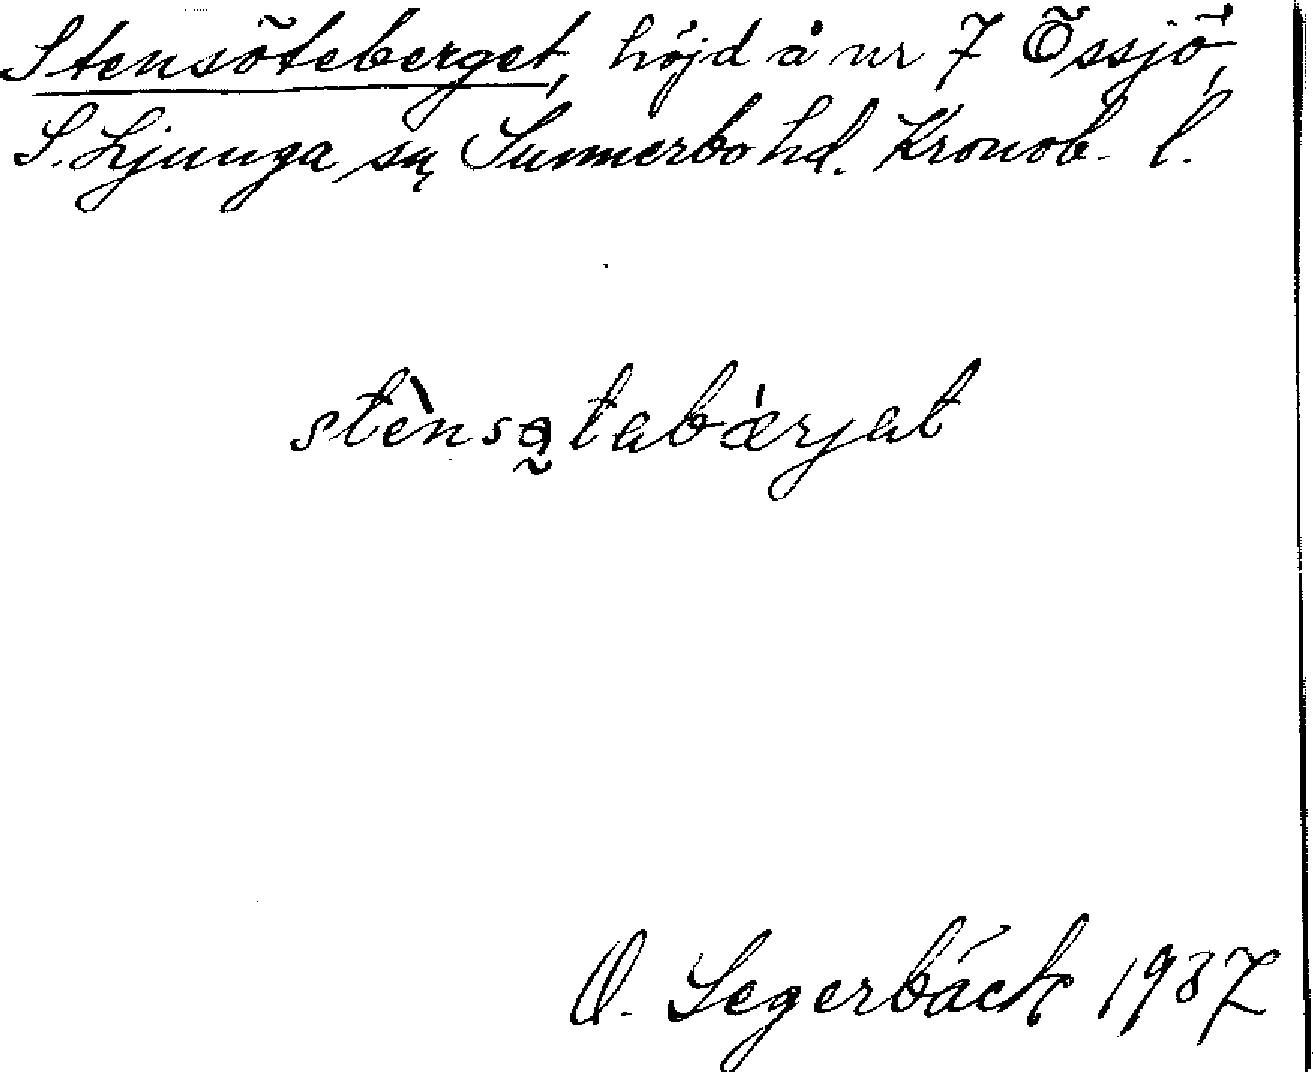 Stensöteberget, höjd å nr 7 Össjö,
S. Ljunga sn, Sunnerbo hd. Kronob. l.
stènsətabærjat
O. Segerbäck 1937